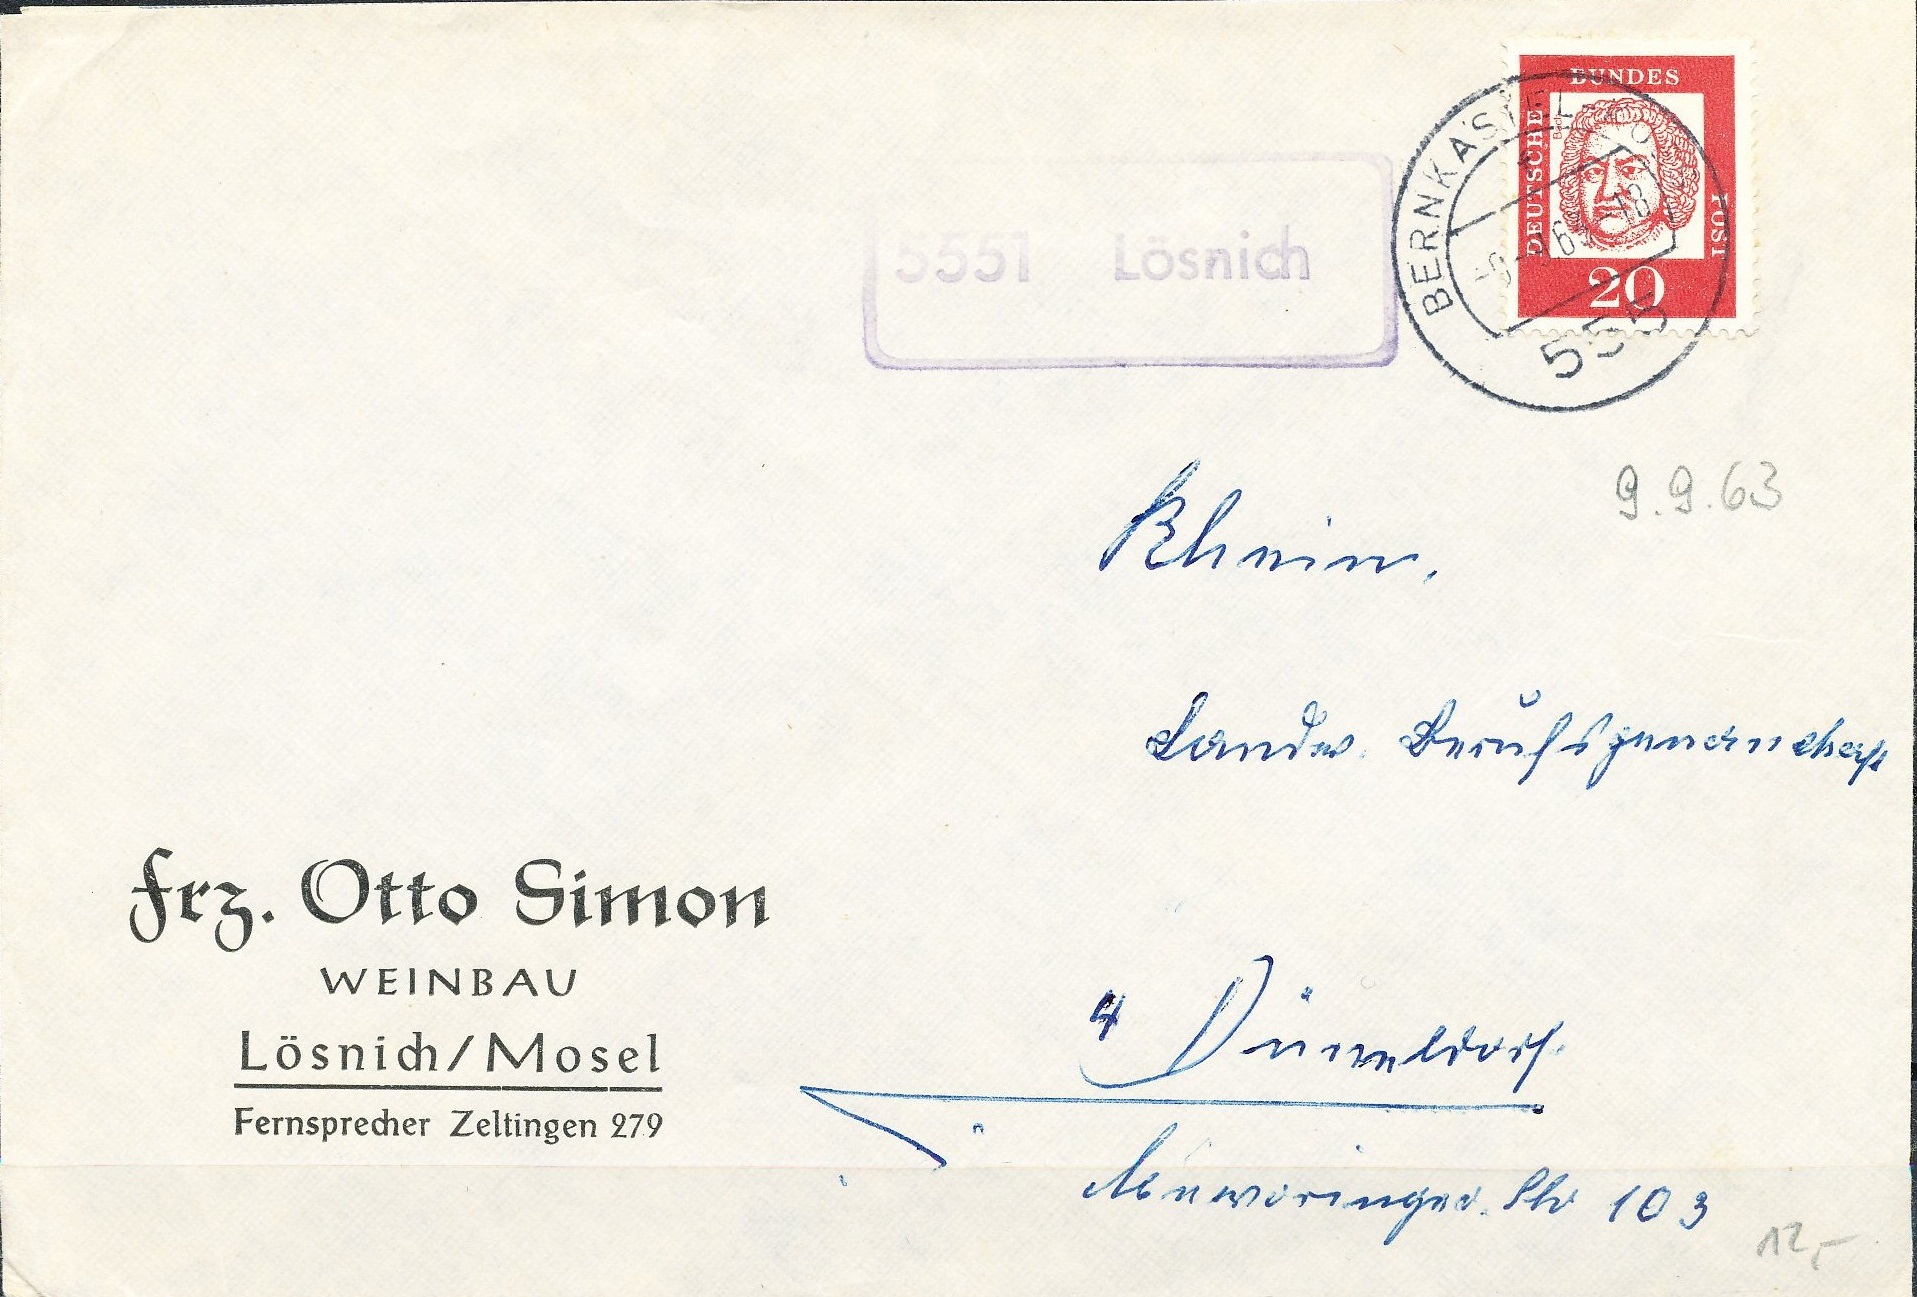 DEUTSCHE BUNDES POST
Bach
20
BERNKASTEL-
-9.-9.63-18
555
5551 Lösnich
9.9.63
Rhein.
Landw. Berufsgenossenschaft
Frz. Otto Simon
WEINBAU
Lösnich/Mosel
Fernsprecher Zeltingen 279
4 Düsseldorf
Str 103
12,-